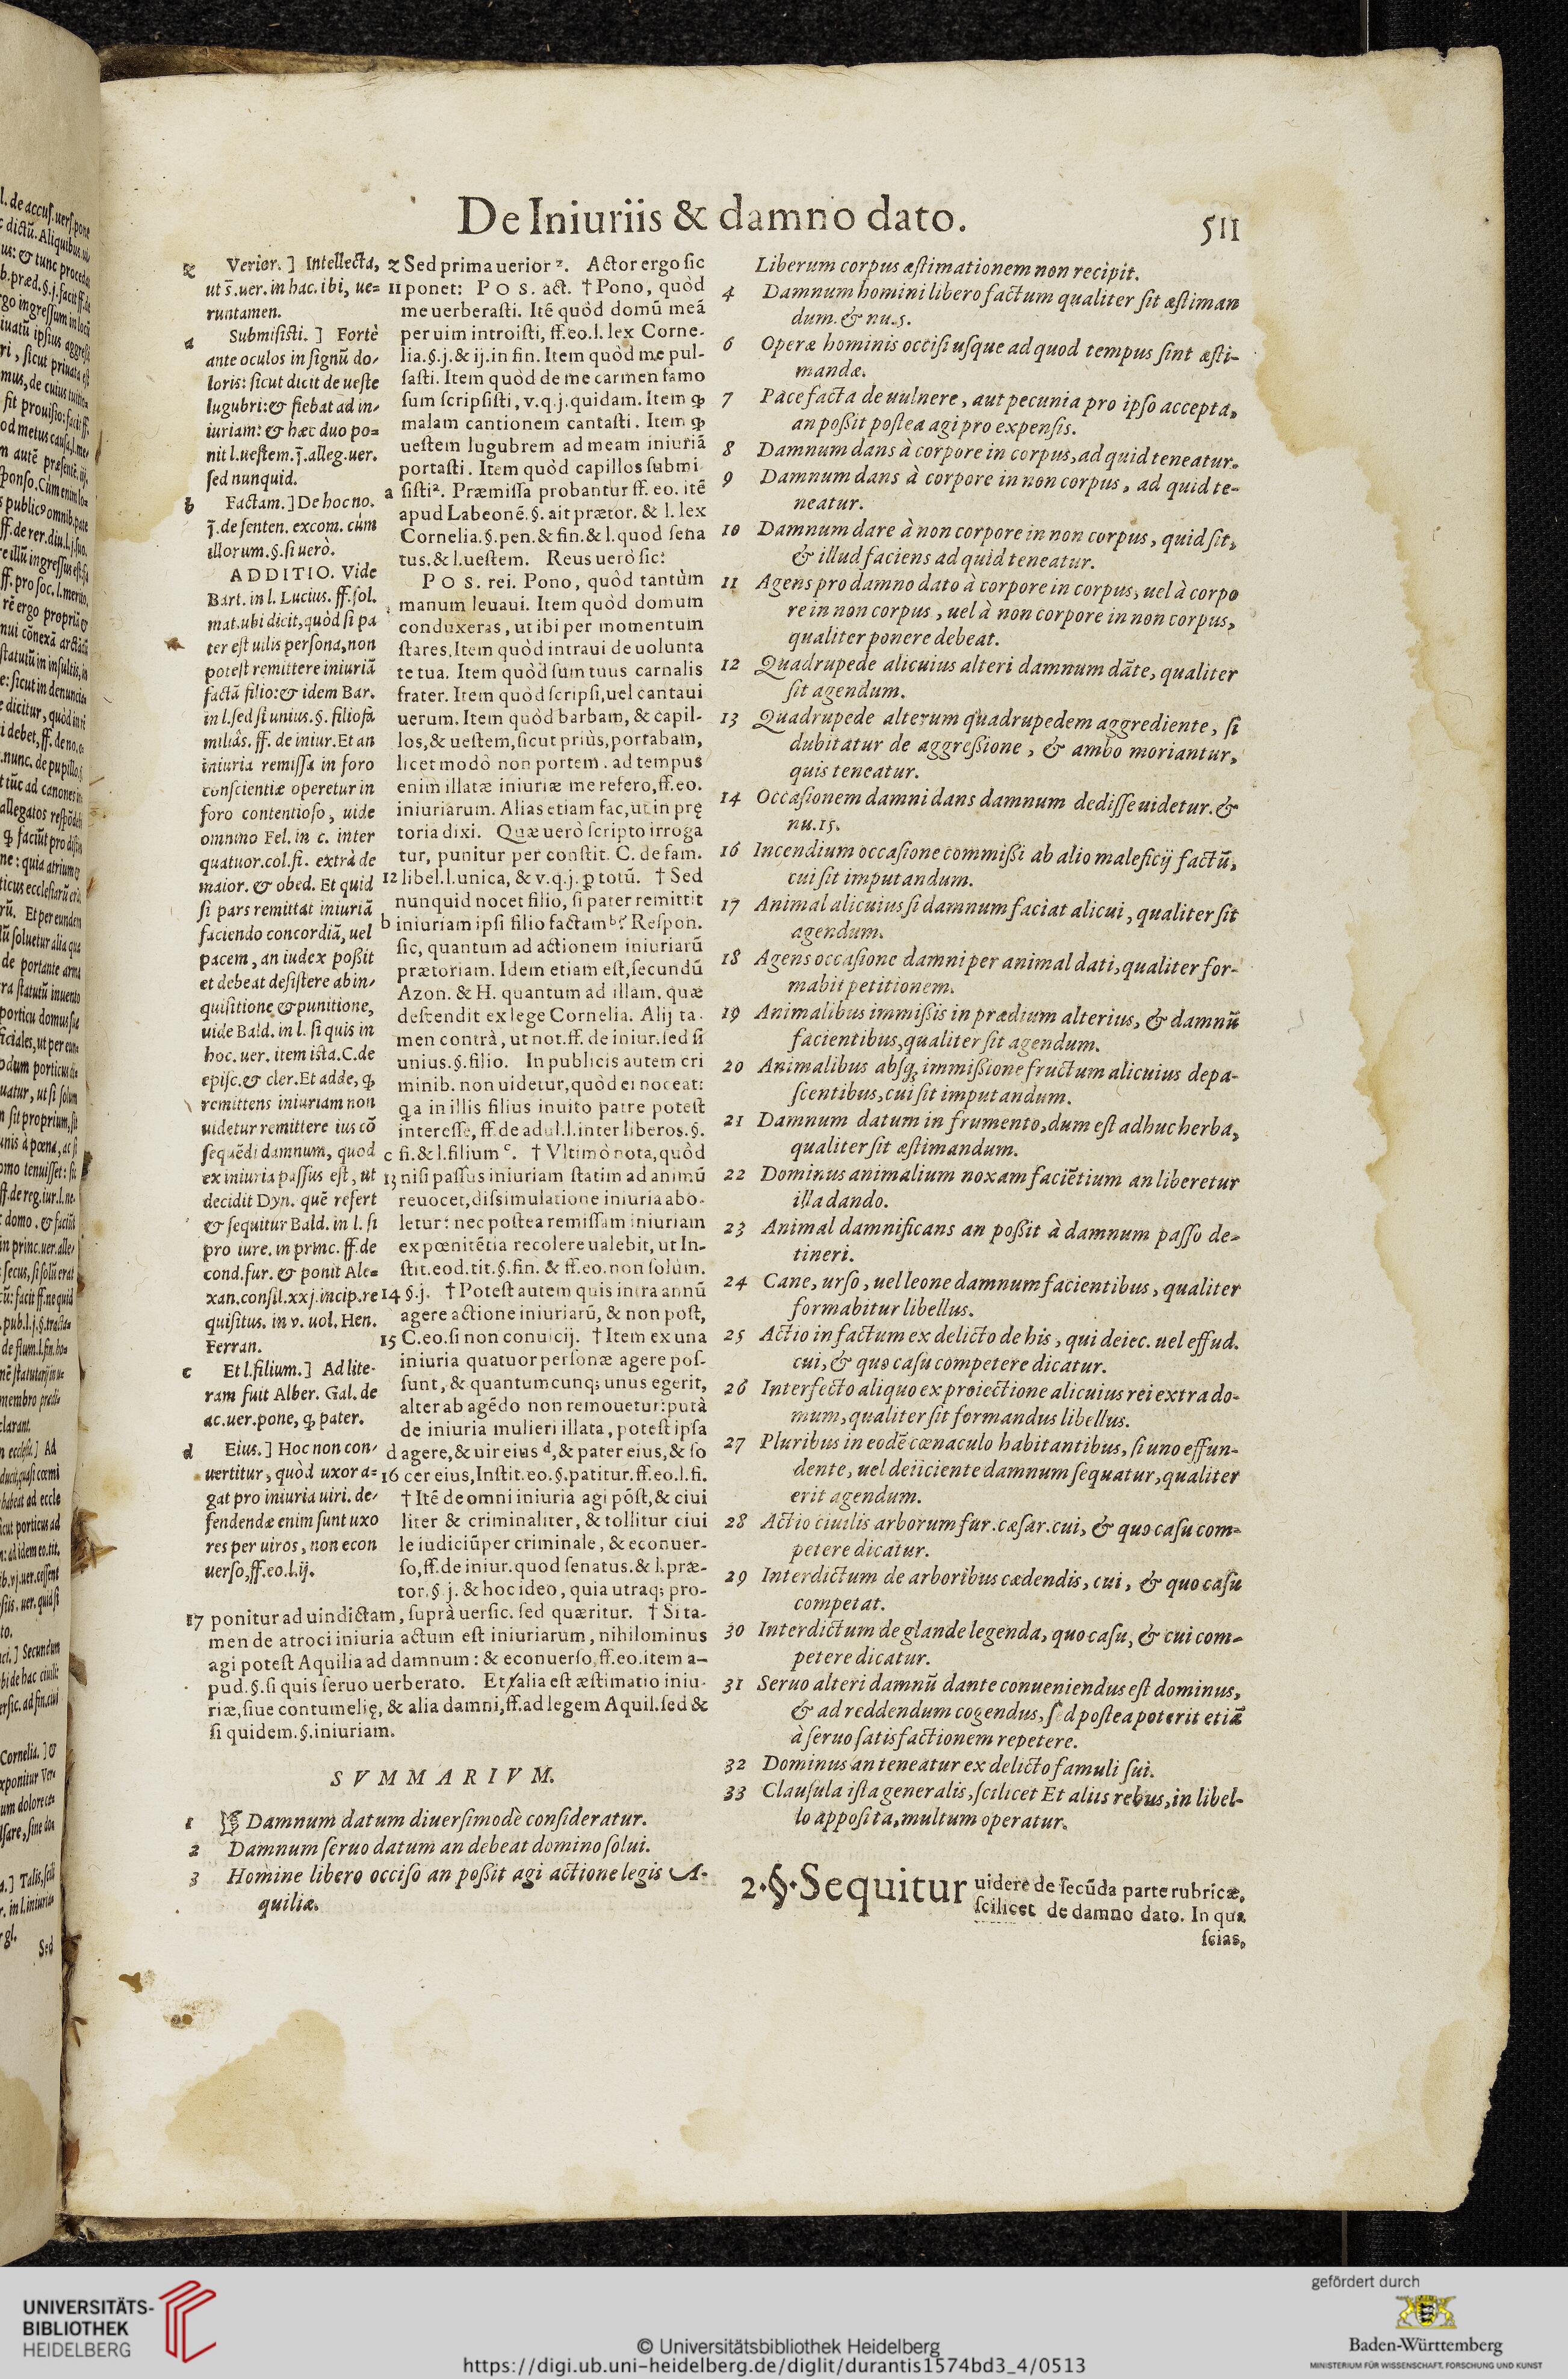 De Iniuriis & damno dato.
511
z Verior. ] Intellecta,
ut s̄.uer. in hac. ibi, ue=
runtamen.
a Submisisti. ] Fortè
ante oculos in signũ do-
loris: sicut dicit de ueste
lugubri: & fiebat ad in-
iuriam: & hæc duo po=
nit l.uestem.j̄.alleg.uer.
sed nunquid.
b Factam. ] De hoc no.
j̄.de senten. excom. cùm
illorum.§.si uerò.
ADDITIO. Vide
Bart. in l. Lucius. ff.sol.
mat.ubi dicit,quòd si pa
ter est uilis persona,non
potest remittere iniuriã
factã filio:& idem Bar.
in l.sed si unius.§. filiofa
miliâs. ff. de iniur.Et an
iniuria remissa in foro
conscientiæ operetur in
foro contentioso, uide
omnino Fel. in c. inter
quatuor.col.fi. extrà de
maior. & obed. Et quid
si pars remittat iniuriã
faciendo concordiã, uel
pacem, an iudex poßit
et debeat desistere ab in-
quisitione & punitione,
uide Bald. in l. si quis in
hoc. uer. item ista.C.de
episc.& cler.Et adde, ꝙ
remittens iniuriam non
uidetur remittere ius cõ
sequẽdi damnum, quod
ex iniuria passus est, ut
decidit Dyn. quẽ refert
& sequitur Bald. in l. si
pro iure. in princ. ff.de
cond.fur. & ponit Ale=
xan.consil.xxj.incip.re
quisitus. in v. uol. Hen.
Ferran.
c Et l.filium. ] Ad lite-
ram fuit Alber. Gal. de
ac.uer.pone, ꝙ pater.
d Eius. ] Hoc non con-
uertitur, quòd uxor a=
gat pro iniuria uiri. de-
fendendæ enim sunt uxo
res per uiros, non econ
uerso,ff.eo.l.ij.
z Sed prima uerior z. Actor ergo sic
11 ponet: POS. act. † Pono, quòd
me uerberasti. Itẽ quòd domũ meã
per uim introisti, ff.eo.l. lex Corne-
lia.§.j.& ij.in fin. Item quòd me pul-
sasti. Item quòd de me carmen famo
sum scripsisti, v.q.j.quidam. Item ꝙ
malam cantionem cantasti. Item ꝙ
uestem lugubrem ad meam iniuriã
portasti. Item quòd capillos submi
a sisti a. Præmissa probantur ff. eo. itẽ
apud Labeonẽ.§. ait prætor. & l. lex
Cornelia.§.pen.& fin.& l.quod sena
tus.& l.uestem. Reus uerò sic:
POS. rei. Pono, quòd tantùm
manum leuaui. Item quòd domum
conduxeras, ut ibi per momentum
stares.Item quòd intraui de uolunta
te tua. Item quòd sum tuus carnalis
frater. Item quòd scripsi,uel cantaui
uerum. Item quòd barbam, & capil-
los,& uestem,sicut priùs,portabam,
licet modò non portem. ad tempus
enim illatæ iniuriæ me refero,ff.eo.
iniuriarum. Alias etiam fac,ut in prę
toria dixi. Quæ uerò scripto irroga
tur, punitur per constit. C. de fam.
12 libel.l.unica, & v.q.j. ꝑ totũ. † Sed
nunquid nocet filio, si pater remittit
b iniuriam ipsi filio factam b? Respon.
sic, quantum ad actionem iniuriarũ
prætoriam. Idem etiam est,secundũ
Azon. & H. quantum ad illam, quæ
descendit ex lege Cornelia. Alij ta.
men contrà, ut not.ff. de iniur.sed si
unius.§.filio. In publicis autem cri
minib. non uidetur,quòd ei noceat:
q̃a in illis filius inuito patre potest
interesse, ff.de adul.l.inter liberos.§.
c fi.& l.filium c. † Vltimò nota,quòd
13 nisi passus iniuriam statim ad animũ
reuocet,dissimulatione iniuria abo-
letur: nec postea remissam iniuriam
ex pœnitẽtia recolere ualebit, ut In-
stit.eod.tit.§.fin. & ff.eo.non solùm.
14 §.j. † Potest autem quis intra annũ
agere actione iniuriarũ, & non post,
15 C.eo.si non conuicij. † Item ex una
iniuria quatuor personæ agere pos-
sunt, & quantumcunq; unus egerit,
alter ab agẽdo non remouetur: putà
de iniuria mulieri illata, potest ipsa
d agere,& uir eius d,& pater eius,& so
16 cer eius,Instit.eo.§.patitur.ff.eo.l.fi.
† Itẽ de omni iniuria agi põst,& ciui
liter & criminaliter, & tollitur ciui
le iudiciũ per criminale, & econuer-
so,ff.de iniur.quod senatus.& l.præ-
tor.§.j. & hoc ideo, quia utraq; pro-
17 ponitur ad uindictam, suprà uersic. sed quæritur. † Si ta-
men de atroci iniuria actum est iniuriarum, nihilominus
agi potest Aquilia ad damnum: & econuerso,ff.eo.item a-
pud.§.si quis seruo uerberato. Et alia est æstimatio iniu-
riæ,siue contumelię, & alia damni,ff.ad legem Aquil.sed &
si quidem.§.iniuriam.
SVMMARIVM.
1 Damnum datum diuersimodè consideratur.
2 Damnum seruo datum an debeat domino solui.
3 Homine libero occiso an poßit agi actione legis A-
quiliæ.
Liberum corpus æstimationem non recipit.
4 Damnum homini libero factum qualiter sit æstiman
dum. & nu.5.
6 Operæ hominis occisi usque ad quod tempus sint æsti-
mandæ.
7 Pace facta de uulnere, aut pecunia pro ipso accepta,
an poßit postea agi pro expensis.
8 Damnum dans à corpore in corpus,ad quid teneatur.
9 Damnum dans à corpore in non corpus, ad quid te-
neatur.
10 Damnum dare à non corpore in non corpus, quid sit,
& illud faciens ad quid teneatur.
11 Agens pro damno dato à corpore in corpus, uel à corpo
re in non corpus, uel à non corpore in non corpus,
qualiter ponere debeat.
12 Quadrupede alicuius alteri damnum dãte, qualiter
sit agendum.
13 Quadrupede alterum quadrupedem aggrediente, si
dubitatur de aggreßione, & ambo moriantur,
quis teneatur.
14 Occasionem damni dans damnum dedisse uidetur. &
nu.15.
16 Incendium occasione commißi ab alio maleficij factũ,
cui sit imputandum.
17 Animal alicuius si damnum faciat alicui, qualiter sit
agendum.
18 Agens occasione damni per animal dati,qualiter for-
mabit petitionem.
19 Animalibus immißis in prædium alterius, & damnũ
facientibus,qualiter sit agendum.
20 Animalibus absq; immißione fructum alicuius depa-
scentibus,cui sit imputandum.
21 Damnum datum in frumento,dum est adhuc herba,
qualiter sit æstimandum.
22 Dominus animalium noxam faciẽtium an liberetur
illa dando.
23 Animal damnificans an poßit à damnum passo de-
tineri.
24 Cane, urso, uel leone damnum facientibus, qualiter
formabitur libellus.
25 Actio in factum ex delicto de his, qui deiec. uel effud.
cui, & quo casu competere dicatur.
26 Interfecto aliquo ex proiectione alicuius rei extra do-
mum,qualiter sit formandus libellus.
27 Pluribus in eodẽ cœnaculo habitantibus, si uno effun-
dente, uel deiiciente damnum sequatur,qualiter
erit agendum.
28 Actio ciuilis arborum fur.cæsar.cui, & quo casu com-
petere dicatur.
29 Interdictum de arboribus cædendis, cui, & quo casu
competat.
30 Interdictum de glande legenda, quo casu, & cui com-
petere dicatur.
31 Seruo alteri damnũ dante conueniendus est dominus,
& ad reddendum cogendus, sed postea poterit etiã
à seruo satisfactionem repetere.
32 Dominus an teneatur ex delicto famuli sui.
33 Clausula ista generalis, scilicet Et aliis rebus,in libel-
lo apposita,multum operatur.
2.§.Sequitur uidere de secũda parte rubricæ,
scilicet de damno dato. In qua
scias,
UNIVERSITÄTS-
BIBLIOTHEK
HEIDELBERG
© Universitätsbibliothek Heidelberg
https://digi.ub.uni-heidelberg.de/diglit/durantis1574bd3_4/0513
gefördert durch
Baden-Württemberg
MINISTERIUM FÜR WISSENSCHAFT, FORSCHUNG UND KUNST